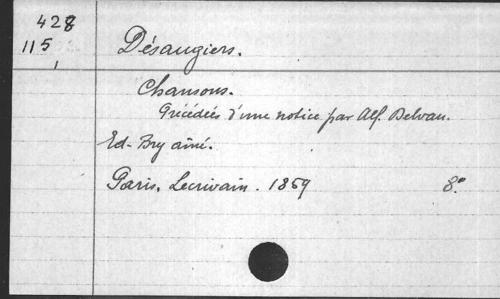 428
115
Désaugiers.
Chansons.
Précédées d'une notice par Alf. Delvau.
Ed. Bry aîné.
Paris, Lecrivain. 1859 8°